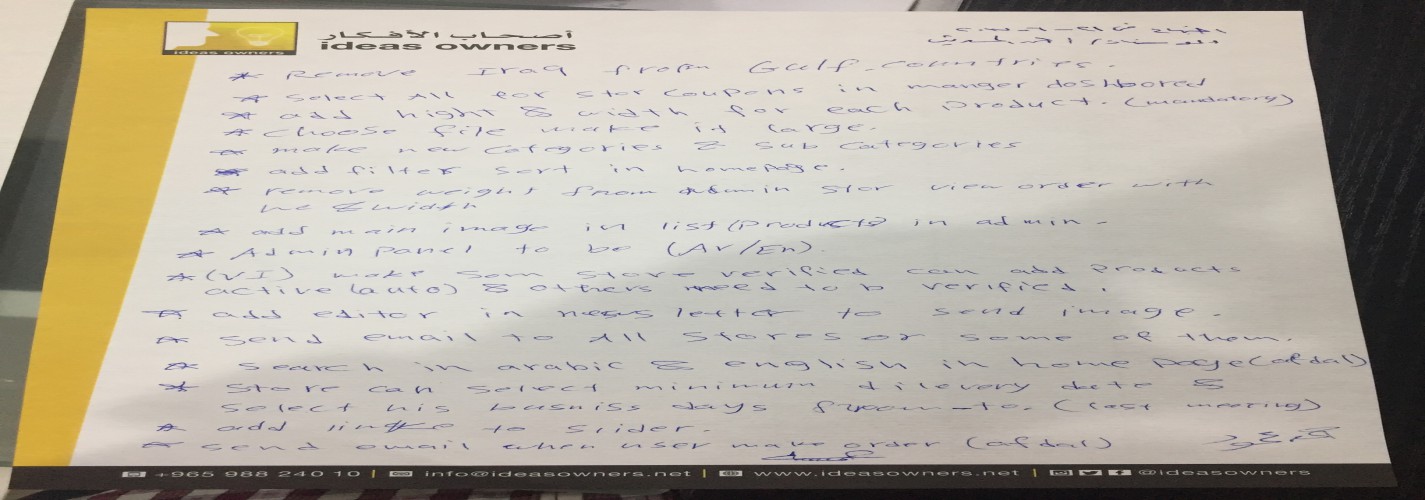 أصحاب الأفكار
ideas owners
ideas owners
* Remove Iraq from Gulf countries.
* Select All for stor coupons in manger dashbored
* add hight & width for each product. (mandatory)
* choose file make it large.
* make new categories & sub categories
* add filter sort in homepage.
* remove weight from admin stor view order with
he & width
* add main image in list (products) in admin -
* Admin panel to be (Ar/En).
* (VI) make som store verified can add products
active (auto) & others need to b verified.
* add editor in news letter to send image.
* send email to All stores or some of them.
* search in arabic & english in home page (afdal)
* store can select minimum dilevery date &
select his busniss days from - to. (last meeting)
* add link to slider.
* send email when user make order (afdal)
+965 988 240 10 | info@ideasowners.net | www.ideasowners.net | @ideasowners